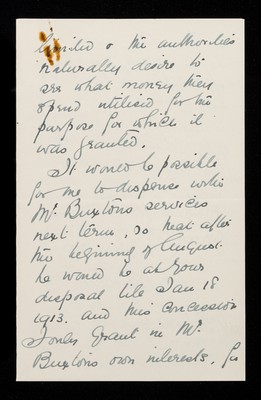 limited & the authorities
naturally desire to
see what money they
spend utilised for the
purpose for which it
was granted.
It would be possible
for me to dispense with
Mr Buxtons services
next term, so that after
the begining of August
he would be at your
disposal till Jan 18
1913. and this concession
I only grant in Mr.
Buxtons own interests, for